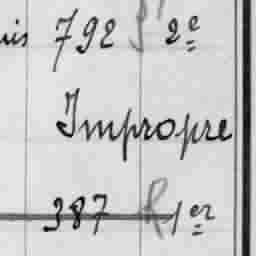 uis 792 2e
Impropre
387 R 1er